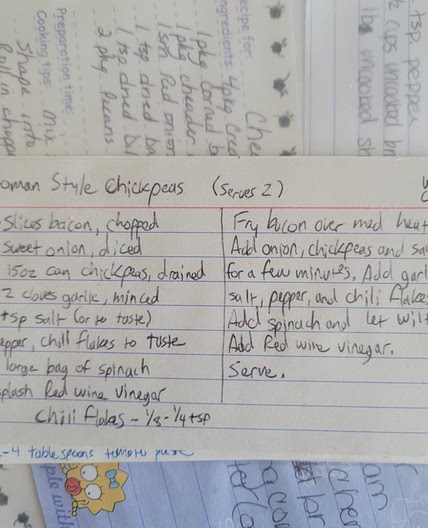 tsp pepper
cups uncooked br
lbs uncooked sh
ecipe for: Chee
ngredients: 4 pkg Crea
1 pkg corned b
1 pkg cheddar
1 sm Red onion
1 tsp dried ba
1 tsp dried dil
2 pkg Pecans
Preparation time:
Cooking tips: mix
shape into
Roll in chopp
oman Style Chickpeas (Serves 2)
Slices bacon, chopped
sweet onion, diced
15oz can chickpeas, drained
2 cloves garlic, minced
tsp salt (or to taste)
epper, chili flakes to taste
large bag of spinach
plash Red wine vinegar
Chili flakes - 1/8 - 1/4 tsp
-4 tablespoons tomato
Fry bacon over med heat
Add onion, chickpeas and sau
for a few minutes, Add garl
salt, pepper, and chili flakes
Add spinach and let wilt
Add Red wine vinegar.
Serve.
ple with